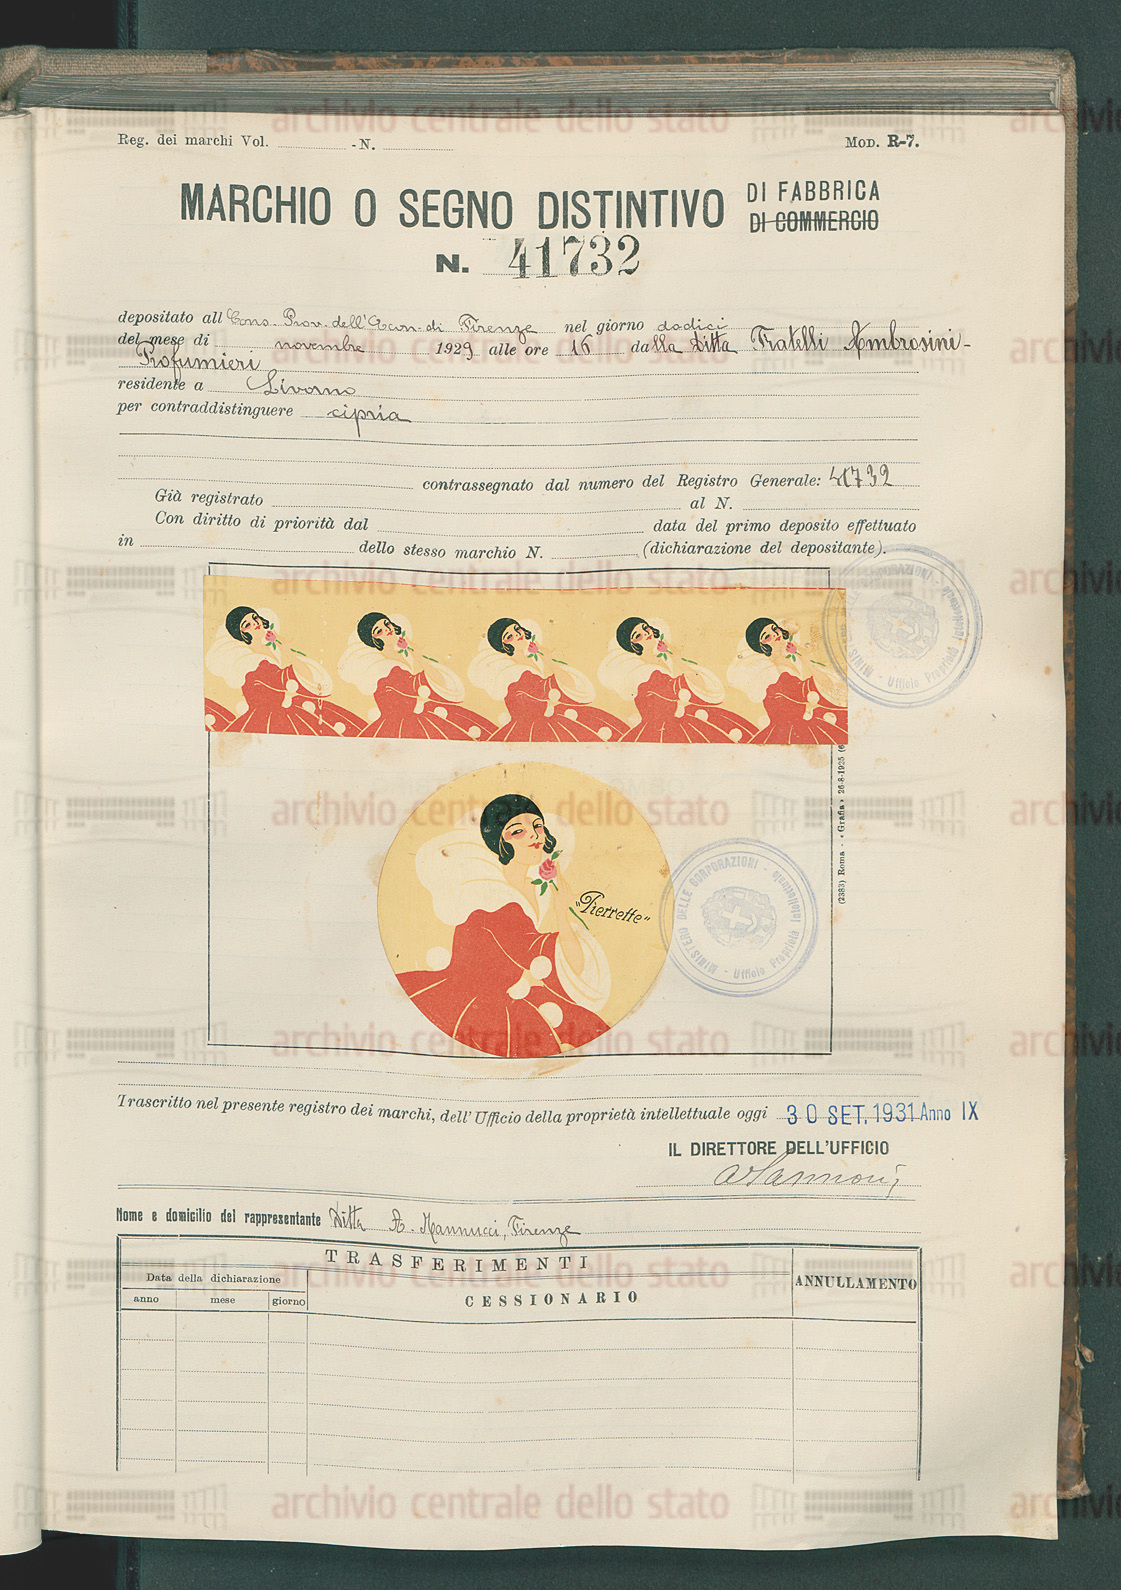 Reg. dei marchi Vol. - N.
Mod. R-7.
MARCHIO O SEGNO DISTINTIVO DI FABBRICA
DI COMMERCIO
N. 41732
depositato all Cons. Prov. dell'Econ. di Firenze nel giorno dodici
del mese di novembre 1929 alle ore 16 dalla Ditta Fratelli Ambrosini-
Profumieri
residente a Livorno
per contraddistinguere cipria
contrassegnato dal numero del Registro Generale: 41732
Già registrato al N.
Con diritto di priorità dal data del primo deposito effettuato
in dello stesso marchio N. (dichiarazione del depositante).
- Ufficio Proprietà Intellettuale -
"Pierrette"
MINISTERO DELLE CORPORAZIONI - Ufficio Proprietà Intellettuale
(2383) Roma - « Grafia » 26-8-1925 (6
Trascritto nel presente registro dei marchi, dell'Ufficio della proprietà intellettuale oggi 30 SET. 1931 Anno IX
IL DIRETTORE DELL'UFFICIO
Nome e domicilio del rappresentante Ditta A. Mannucci, Firenze
TRASFERIMENTI
Data della dichiarazione
ANNULLAMENTO
anno mese giorno
CESSIONARIO
archivio centrale dello stato